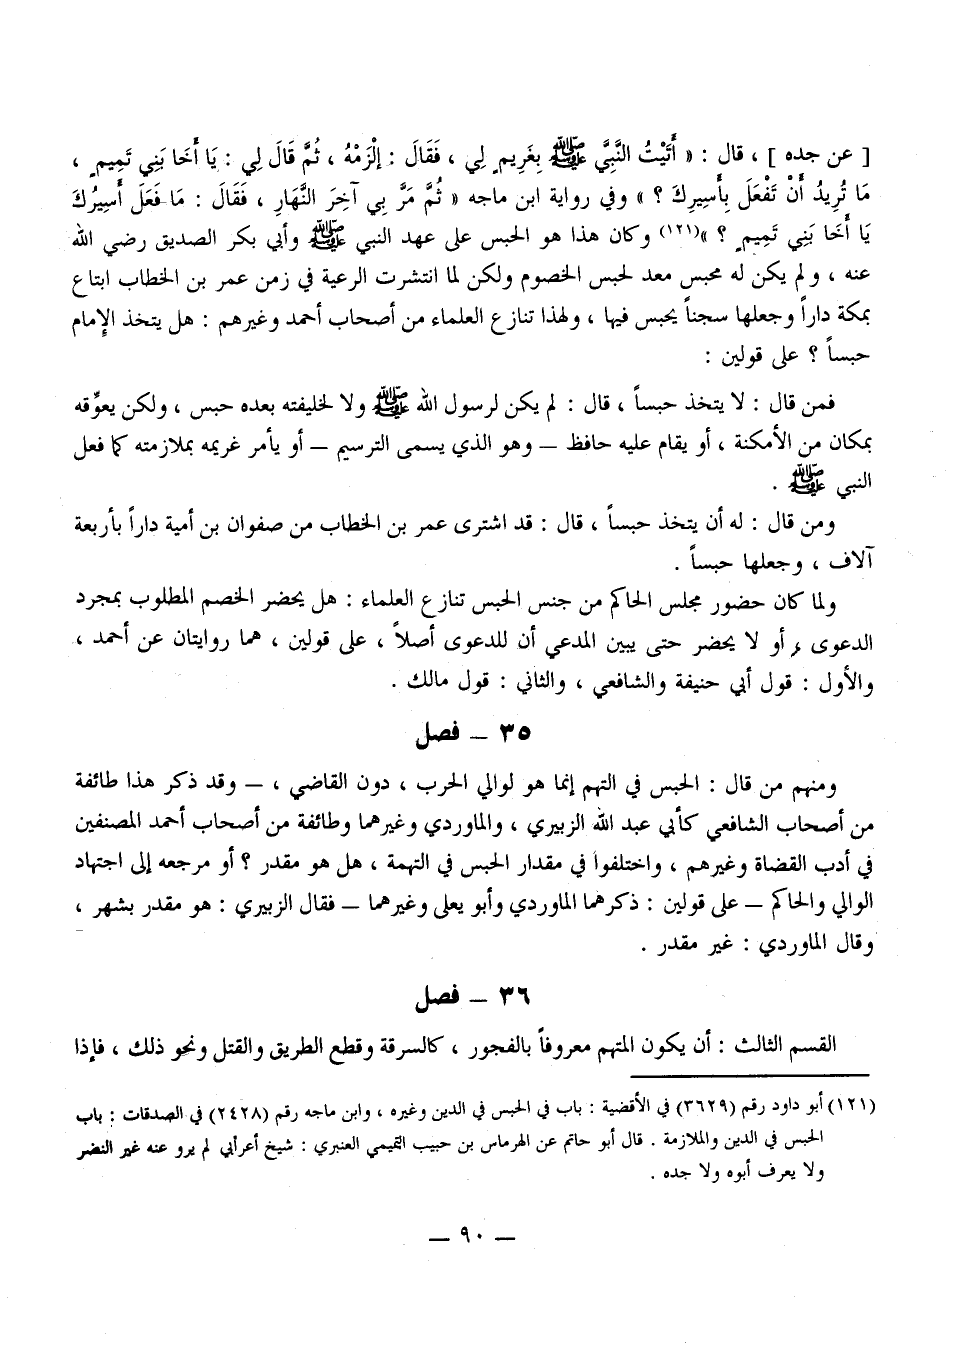 [ عن جده ] ، قال : « أَتَيْتُ النَّبِيَّ ﷺ بِغَرِيمٍ لِي ، فَقَالَ : إِلْزَمْهُ ، ثُمَّ قَالَ لِي : يَا أَخَا بَنِي تَمِيمٍ ،
مَا تُرِيدُ أَنْ تَفْعَلَ بِأَسِيرِكَ ؟ » وفي رواية ابن ماجه « ثُمَّ مَرَّ بِي آخِرَ النَّهَارِ ، فَقَالَ : مَا فَعَلَ أَسِيرُكَ
يَا أَخَا بَنِي تَمِيمٍ ؟ »(١٢١) وكان هذا هو الحبس على عهد النبي ﷺ وأبي بكر الصديق رضي الله
عنه ، ولم يكن له محبس معد لحبس الخصوم ولكن لما انتشرت الرعية في زمن عمر بن الخطاب ابتاع
بمكة داراً وجعلها سجناً يحبس فيها ، ولهذا تنازع العلماء من أصحاب أحمد وغيرهم : هل يتخذ الإمام
حبساً ؟ على قولين :
فمن قال : لا يتخذ حبساً ، قال : لم يكن لرسول الله ﷺ ولا لخليفته بعده حبس ، ولكن يعوِّقه
بمكان من الأمكنة ، أو يقام عليه حافظ — وهو الذي يسمى الترسيم — أو يأمر غريمه بملازمته كما فعل
النبي ﷺ .
ومن قال : له أن يتخذ حبساً ، قال : قد اشترى عمر بن الخطاب من صفوان بن أمية داراً بأربعة
آلاف ، وجعلها حبساً .
ولما كان حضور مجلس الحاكم من جنس الحبس تنازع العلماء : هل يحضر الخصم المطلوب بمجرد
الدعوى ، أو لا يحضر حتى يبين المدعي أن للدعوى أصلاً ، على قولين ، هما روايتان عن أحمد ،
والأول : قول أبي حنيفة والشافعي ، والثاني : قول مالك .
٣٥ — فصل
ومنهم من قال : الحبس في التهم إنما هو لوالي الحرب ، دون القاضي ، — وقد ذكر هذا طائفة
من أصحاب الشافعي كأبي عبد الله الزبيري ، والماوردي وغيرهما وطائفة من أصحاب أحمد المصنفين
في أدب القضاة وغيرهم ، واختلفوا في مقدار الحبس في التهمة ، هل هو مقدر ؟ أو مرجعه إلى اجتهاد
الوالي والحاكم — على قولين : ذكرهما الماوردي وأبو يعلى وغيرهما — فقال الزبيري : هو مقدر بشهر ،
وقال الماوردي : غير مقدر .
٣٦ — فصل
القسم الثالث : أن يكون المتهم معروفاً بالفجور ، كالسرقة وقطع الطريق والقتل ونحو ذلك ، فإذا
(١٢١) أبو داود رقم (٣٦٢٩) في الأقضية : باب في الحبس في الدين وغيره ، وابن ماجه رقم (٢٤٢٨) في الصدقات : باب
الحبس في الدين والملازمة . قال أبو حاتم عن الهرماس بن حبيب التميمي العنبري : شيخ أعرأبي لم يرو عنه غير النضر
ولا يعرف أبوه ولا جده .
— ٩٠ —